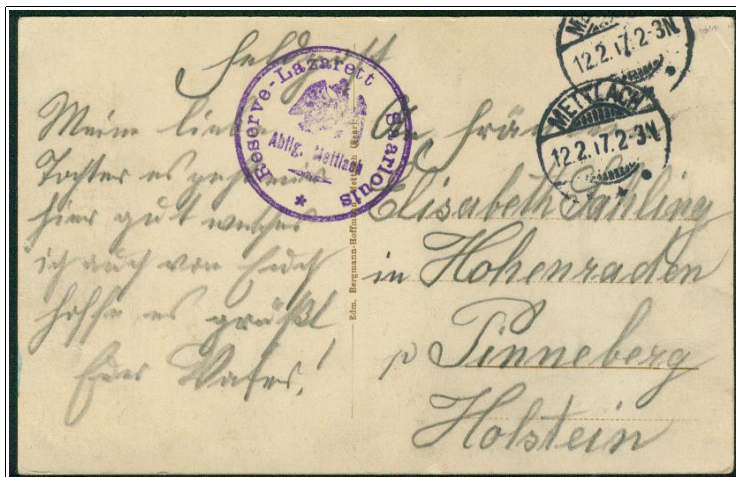 Feldpost
Reserve-Lazarett Saarlouis
Abtlg. Mettlach
METTLACH
12.2.17.2-3N
METTLACH
12.2.17.2-3N
Meine liebe
Tochter es geht mir
hier gut welches
ich auch von Euch
hoffe es grüßt
Euer Vater!
Edm. Bergmann-Hoffmann, Mettlach (Saar)
An Fräulein
Elisabeth Pahling
in Hohenraden
p Pinneberg
Holstein